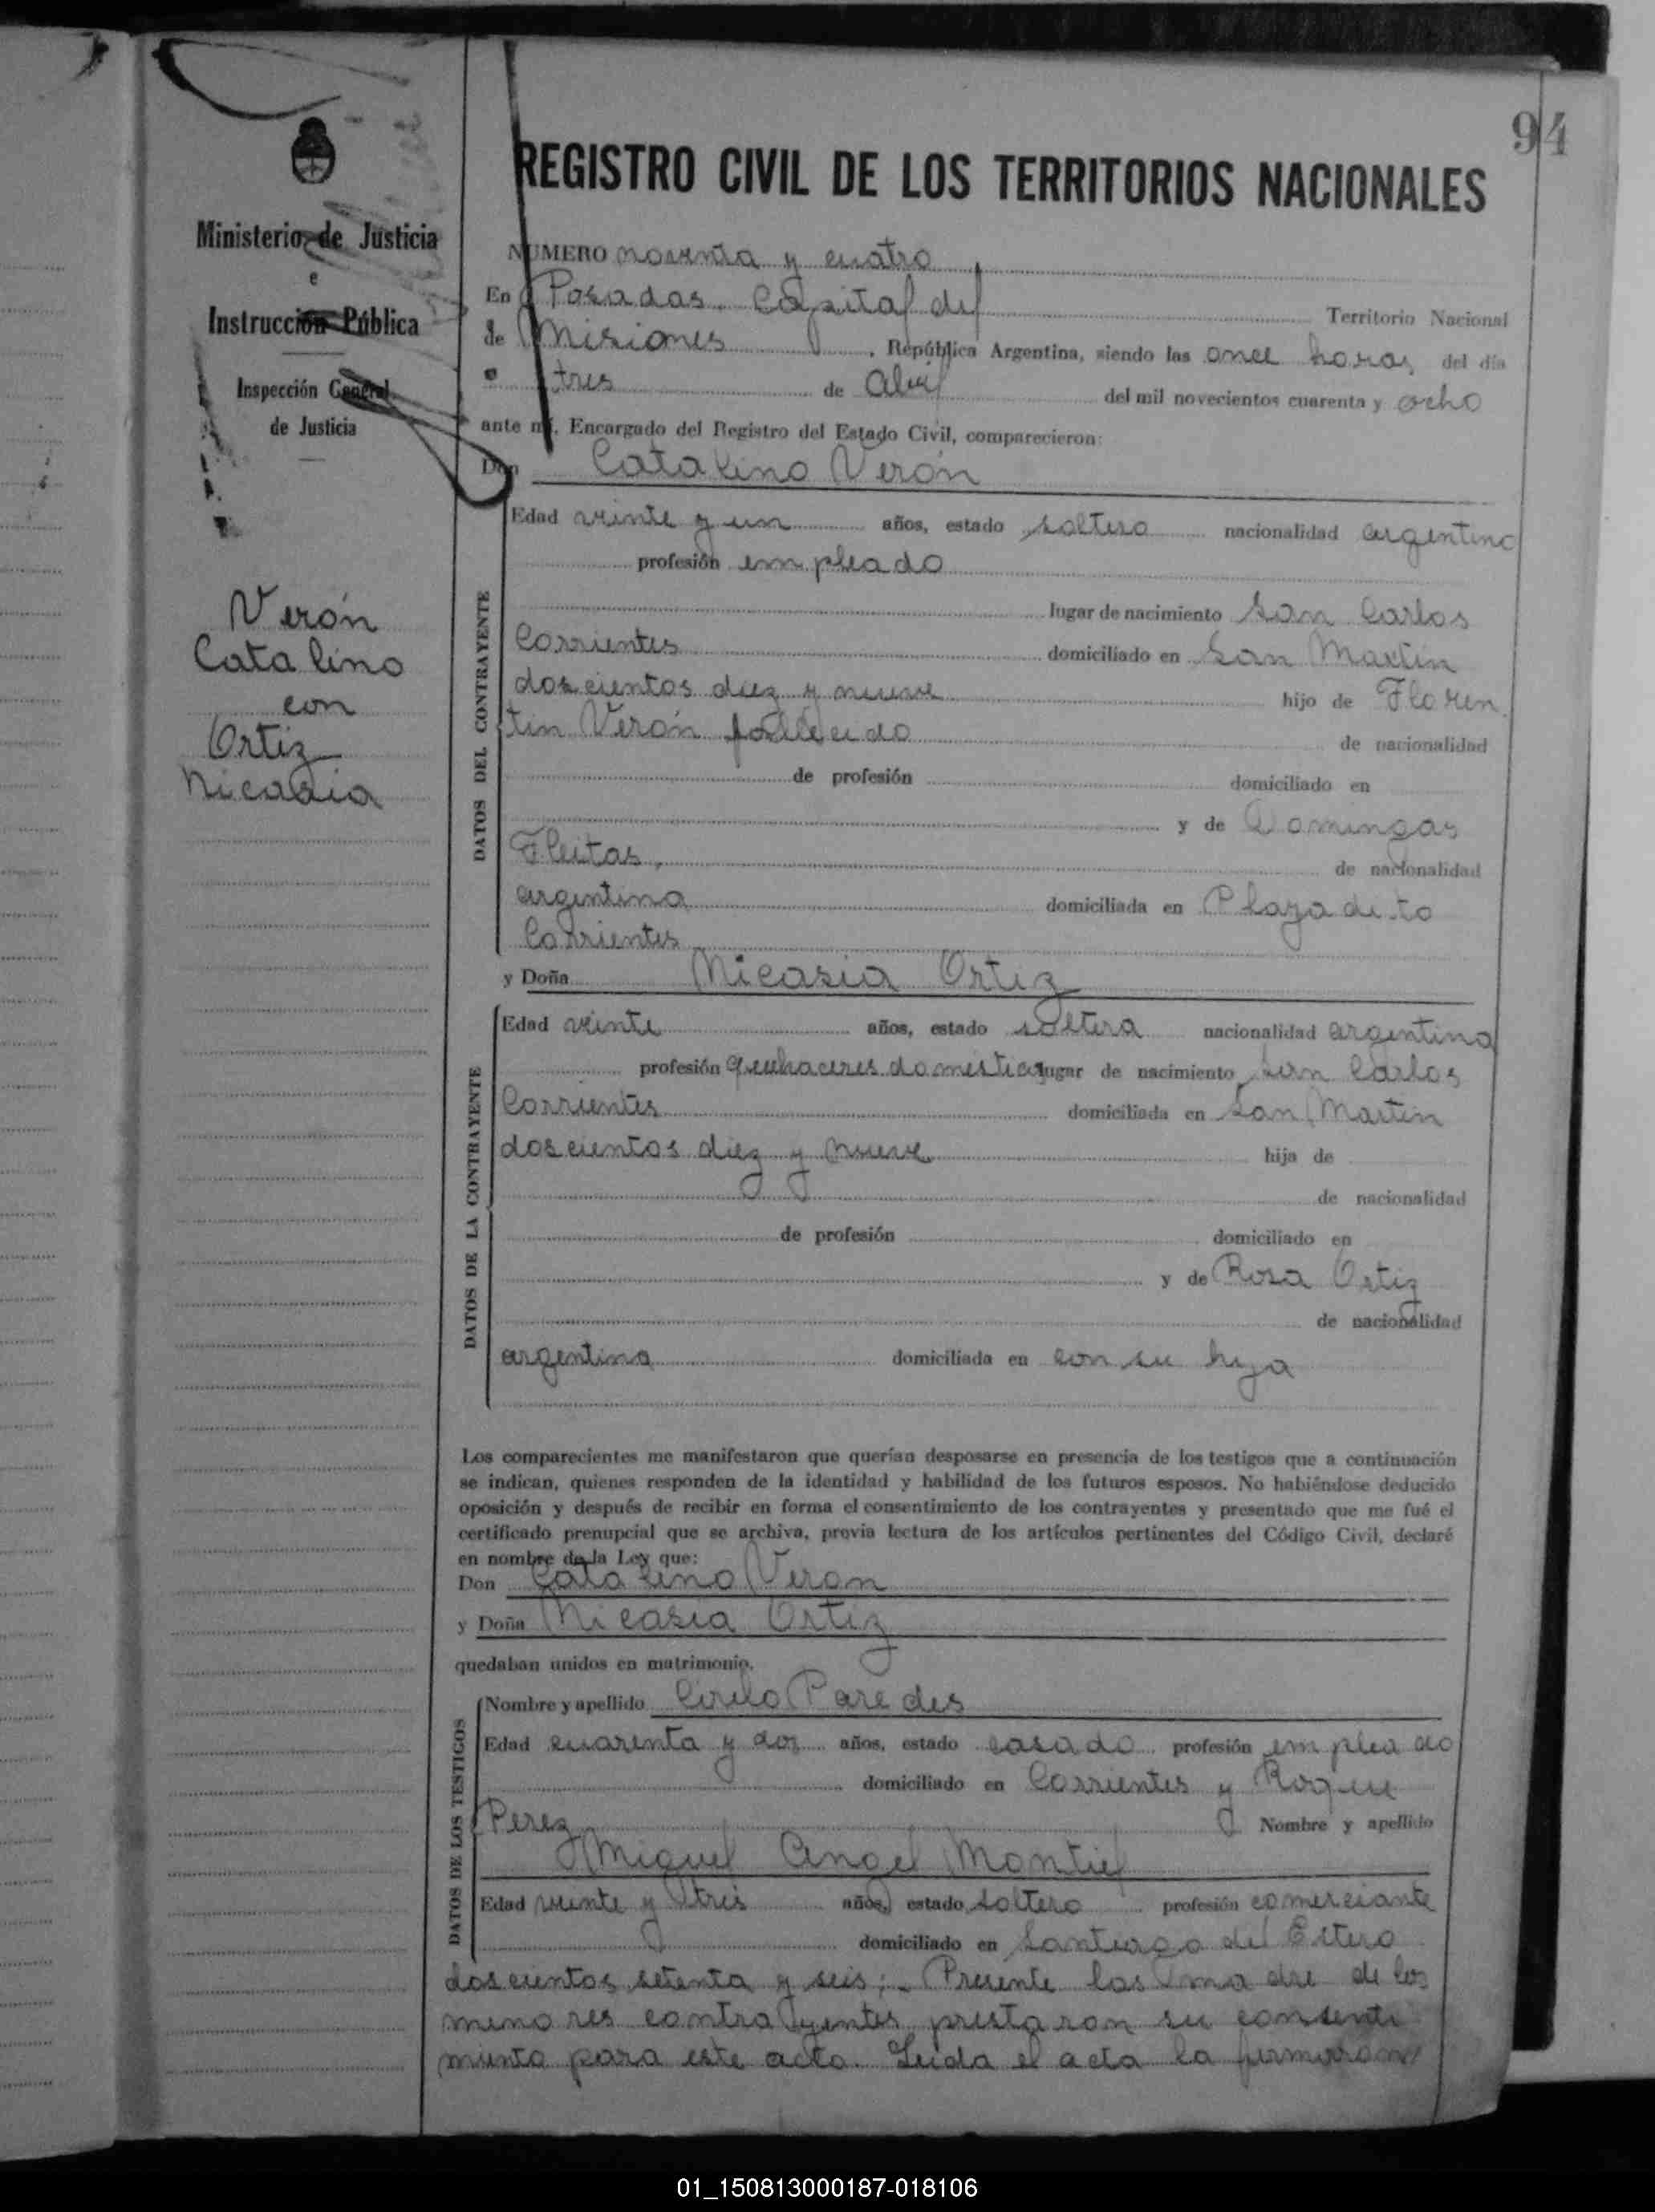 94
REGISTRO CIVIL DE LOS TERRITORIOS NACIONALES
Ministerio de Justicia
e
Instrucción Pública
Inspección General
de Justicia
Verón
Catalino
con
Ortiz
Nicasia
NUMERO noventa y cuatro
En Posadas Capital del Territorio Nacional
de Misiones, República Argentina, siendo las once horas del día
tres de Abril del mil novecientos cuarenta y ocho
ante mí, Encargado del Registro del Estado Civil, comparecieron:
Don Catalino Verón
DATOS DEL CONTRAYENTE
Edad veinte y un años, estado soltero nacionalidad argentino
profesión empleado
lugar de nacimiento San Carlos
Corrientes domiciliado en San Martin
doscientos diez y nueve hijo de Floren
tin Verón fallecido de nacionalidad
de profesión domiciliado en
y de Domingas
Fleitas, de nacionalidad
argentina domiciliada en Playadito
Corrientes
y Doña Nicasia Ortiz
DATOS DE LA CONTRAYENTE
Edad veinte años, estado soltera nacionalidad argentina
profesión quehaceres domesticos lugar de nacimiento San Carlos
Corrientes domiciliada en San Martin
doscientos diez y nueve hija de
de nacionalidad
de profesión domiciliado en
y de Rosa Ortiz
de nacionalidad
argentina domiciliada en con su hija
Los comparecientes me manifestaron que querían desposarse en presencia de los testigos que a continuación
se indican, quienes responden de la identidad y habilidad de los futuros esposos. No habiéndose deducido
oposición y después de recibir en forma el consentimiento de los contrayentes y presentado que me fué el
certificado prenupcial que se archiva, previa lectura de los artículos pertinentes del Código Civil, declaré
en nombre de la Ley que:
Don Catalino Veron
y Doña Nicasia Ortiz
quedaban unidos en matrimonio.
DATOS DE LOS TESTIGOS
Nombre y apellido Cirilo Paredes
Edad cuarenta y dos años, estado casado profesión empleado
domiciliado en Corrientes y Roque
Perez Nombre y apellido
Miguel Angel Montiel
Edad veinte y tres años, estado soltero profesión comerciante
domiciliado en Santiago del Estero
doscientos setenta y seis;- Presente las madre de los
menores contrayentes prestaron su consenti
miento para este acto. Leida el acta la firmaron
01_150813000187-018106